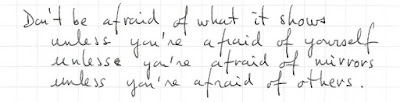 Don't be afraid of what it shows
unless you're afraid of yourself
unlesse you're afraid of mirrors
unless you're afraid of others.